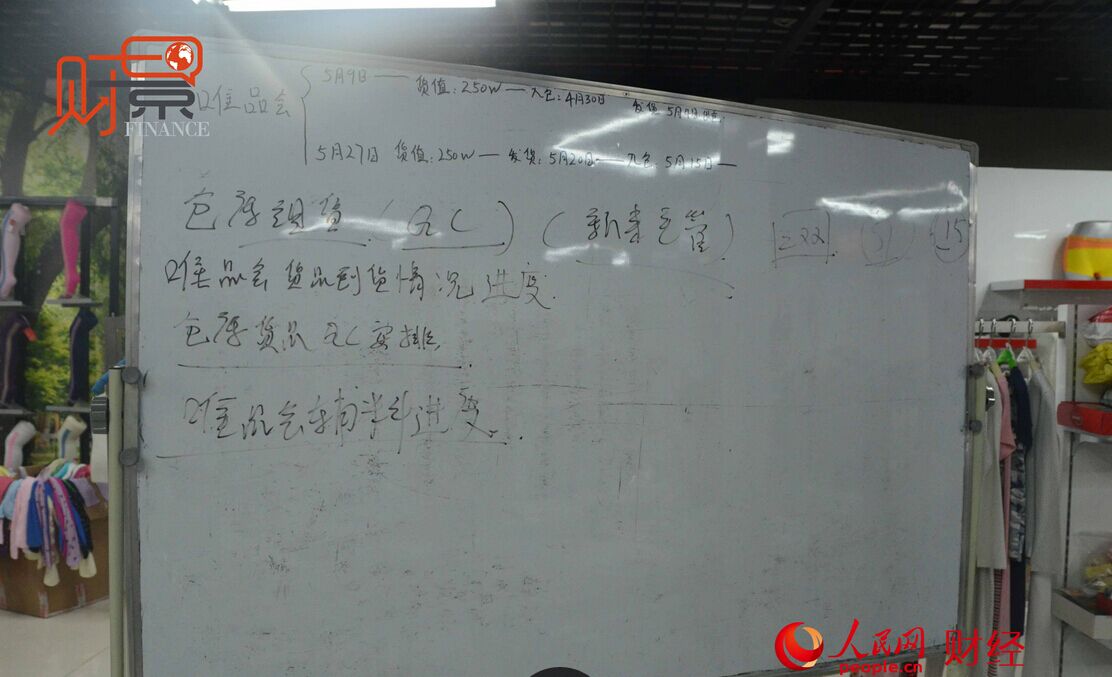 财景
FINANCE
唯品会
5月9日 — 货值：250W — 入仓：4月30日 发货 5月
5月27日 货值：250W — 发货：5月20日 — 入仓：5月15日 —
仓库 货 (C) (新 管)
唯品会货品到货情况进度.
仓库货品 C 安排.
唯品会辅料进度.
15
人民网 财经
people.cn